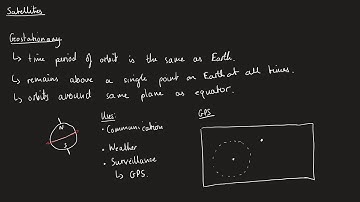 Satellites
Geostationary
↳ time period of orbit is the same as Earth.
↳ remains above a single point on Earth at all times.
↳ orbits around same plane as equator.
N
S
Uses:
• Communication
• Weather
• Surveillance
↳ GPS.
GPS